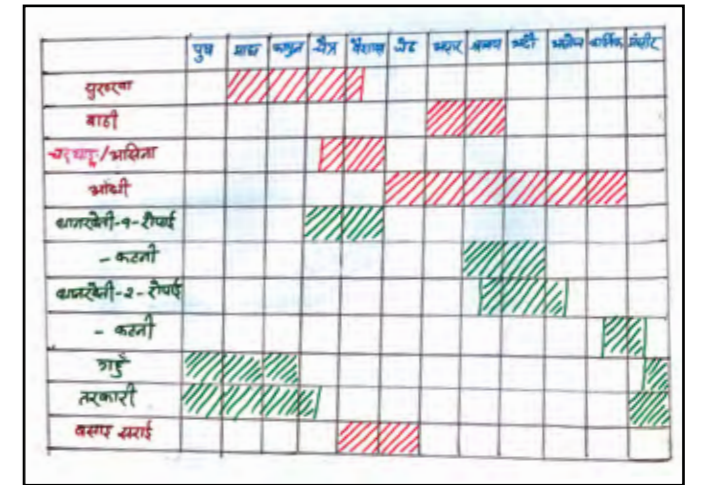 पुष माघ फागुन चैत्र बैशाख जेठ असार श्रावण भदौ असोज कार्तिक मंसीर
बाढी
आँधी
धानखेती-१-रोपाई
- कटनी
धानखेती-२-रोपाई
- कटनी
गहुँ
तरकारी
बसाई सराई